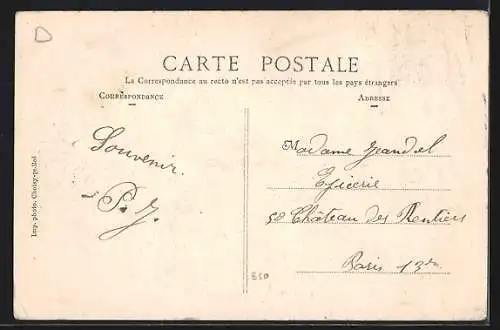 D
CARTE POSTALE
La Correspondance au recto n'est pas acceptée par tous les pays étrangers
CORRESPONDANCE
ADRESSE
Souvenir.
P. J.
Madame Grandel
Epicerie
50 Château des Rentiers
Paris 13e
Imp. photo. Choisy-le-Roi
850